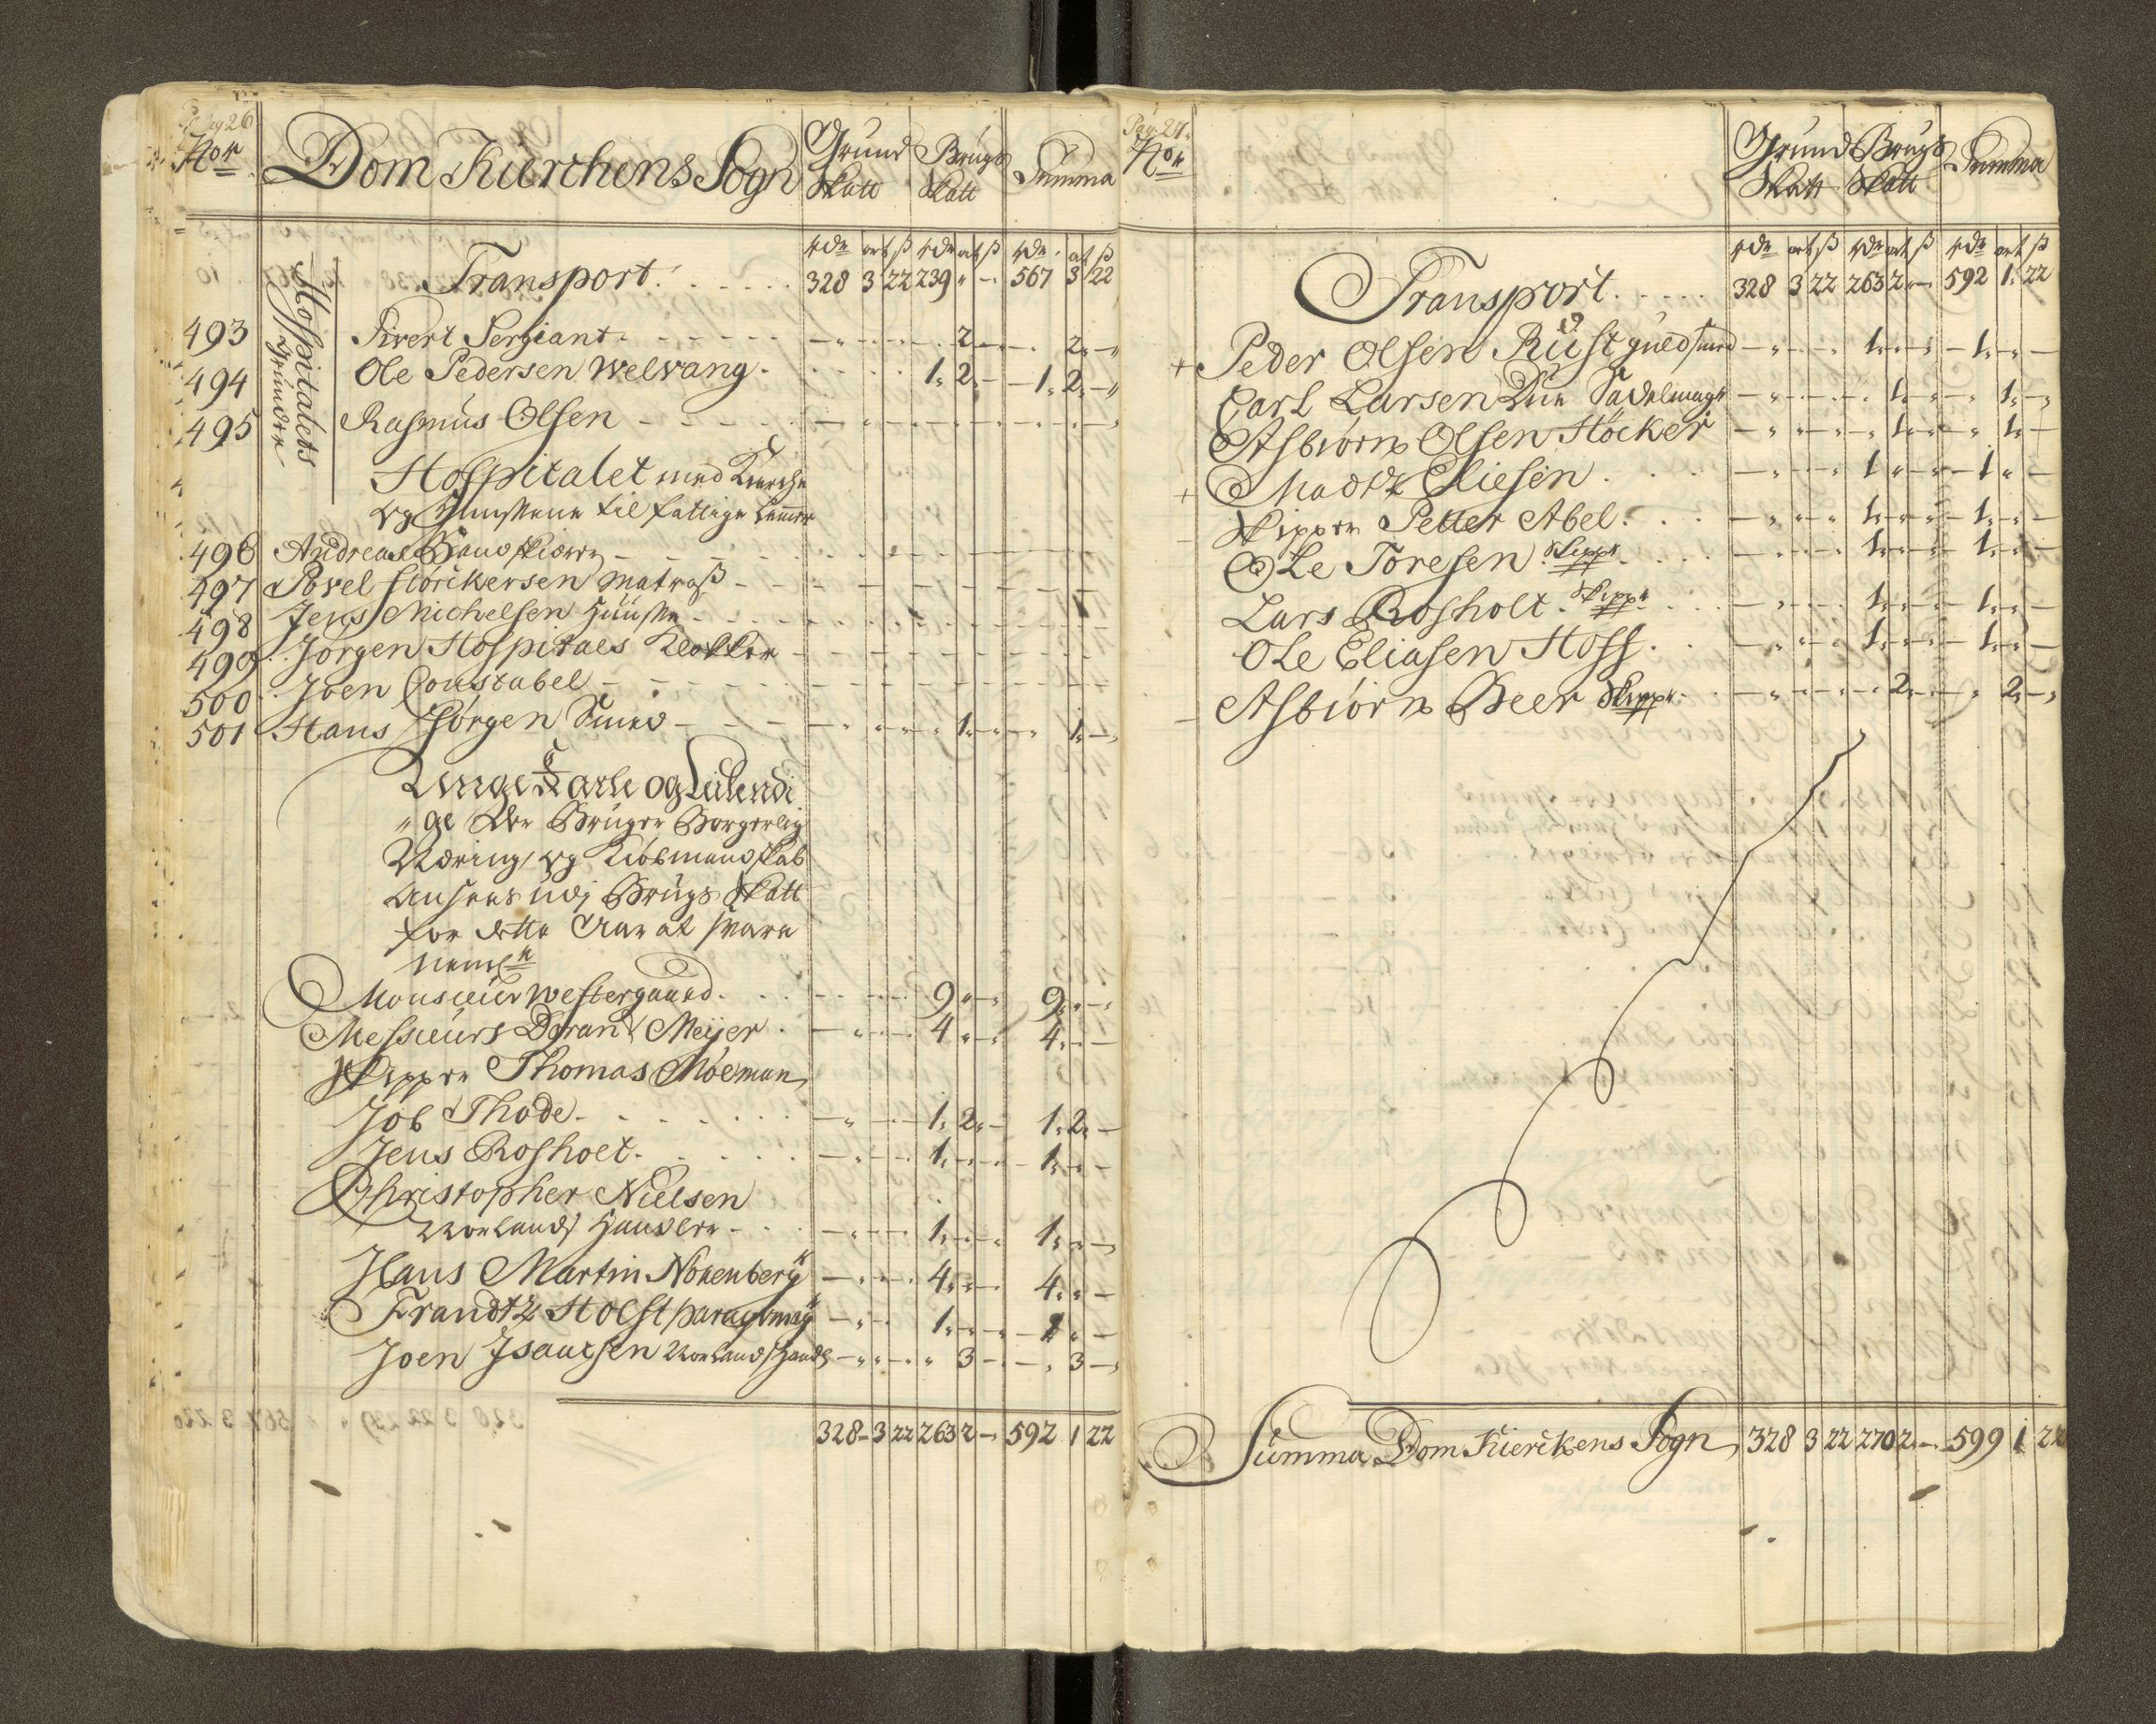 Pag 26
No
Dom Kierchens Sogn
Grund Skatt
Brugs Skatt
Summa
rdr ort ß rdr ort ß rdr ort ß
Transport. 328 3 22 239 " - 567 3 22
Hospitalets grunde
493 Sivert Sergiant - 2 - 2 -
494 Ole Pedersen Welvang. 1. 2. - 1. 2. -
495 Rasmus Olsen
Hospitalet med Kierche
og Huussene til fattige Lemmer
496 Andreas Handskiær
497 Povel Storckersen Matroß
498 Jens Michelsen
499 Jörgen Hospitals Klokker
500 Joen Constabel
501 Hans Jörgen Smed - 1 - 1 -
Unge Karle og Leilendi
" ge der Bruger Borgerlig
Næring, og Kiöbmandskab
Ansees udj Brugs Skatt
for dette Aar at svare
Neml
Monsieur Westergaard. 9 " - 9 " -
Messieurs Doran & Meyer. 4 " - 4 " -
Skipper Thomas Moeman
Job Thode. 1. 2. - 1. 2. -
Jens Rosholt. 1. - - 1. - -
Christopher Nielsen
Norlands Handler 1. - - 1. - -
Hans Martin Nobenberg 4. - - 4. - -
Frandtz Holst 1. - - 1. - -
Joen Isaacsen Norlands Handl 3 - 3 -
328 - 3 22 263 2 - 592 1 22
Pag. 27.
No
Grund Skatt
Brugs Skatt
Summa
rdr ort ß rdr ort ß rdr ort ß
Transport. 328 3 22 263 2 - 592 1. 22
+ Peder Olsen Rüst guldsmed 1. - - 1. - -
Carl Larsen Due Sadelmager 1. - 1. -
Asbiörn Olsen Höcker 1. - 1. -
+ Madtz Eliesen 1 " - 1 " -
- Skipper Petter Abel. 1. - - 1. - -
Ole Toresen. Skipper 1. - - 1. - -
Lars Rosholt. Skipper 1. - - 1. - -
Ole Eliasen Hoff. 1. - - 1. - -
- Asbiörn Beer Skipper 2. - 2. -
Summa Dom Kierckens Sogn 328 3 22 270 2 - 599 1 22